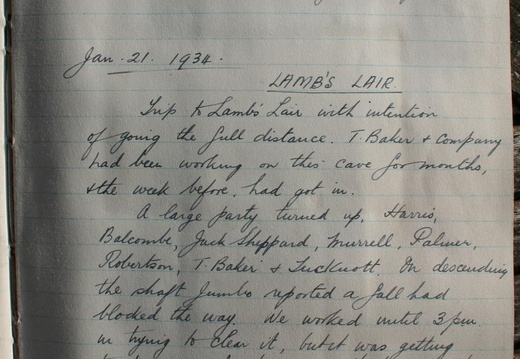 Jan. 21. 1934.
LAMB'S LAIR.
Trip to Lamb's Lair with intention
of going the full distance. T. Baker & Company
had been working on this cave for months,
& the week before, had got in.
A large party turned up, Harris,
Balcombe, Jack Sheppard, Murrell, Palmer,
Robertson, T. Baker & Tucknott. On descending
the shaft Jumbo reported a fall had
blocked the way. We worked until 3 pm
in trying to clear it, but it was getting